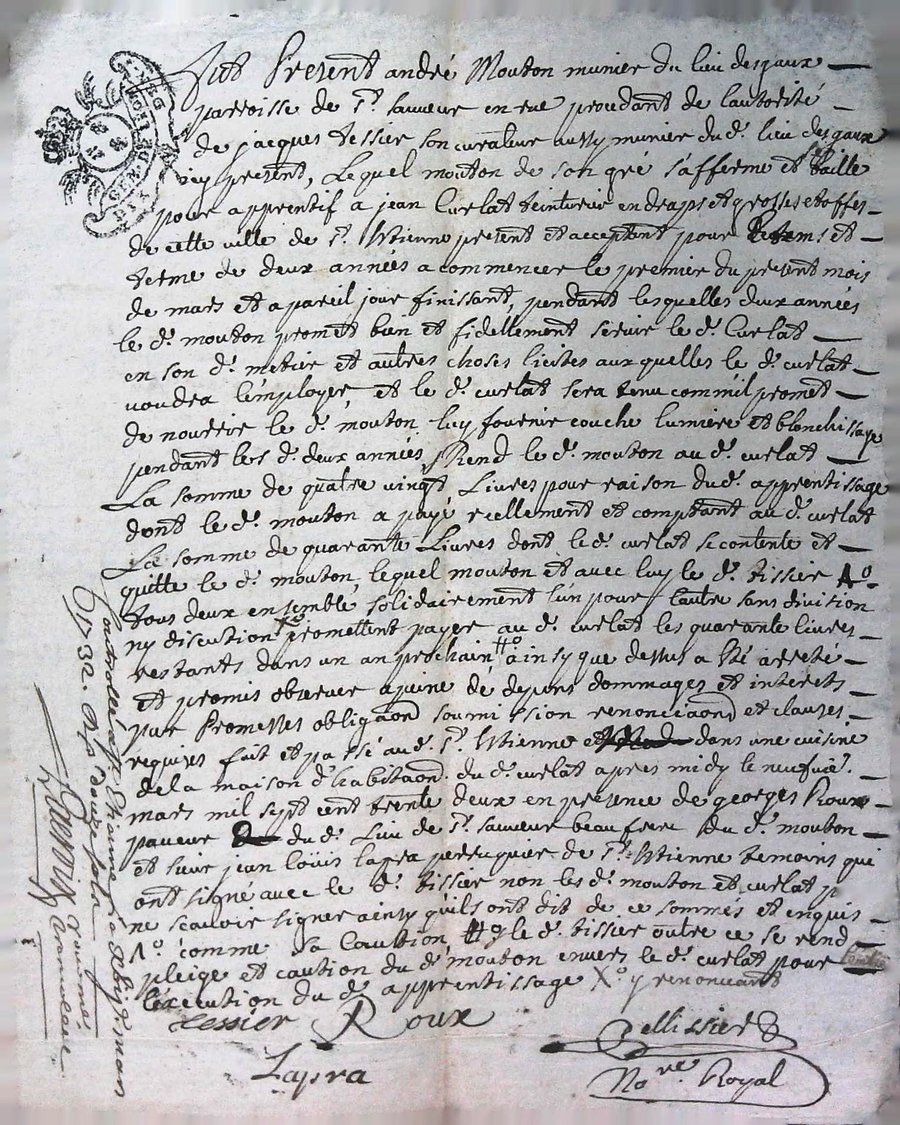 fut Present andré Mouton munier du lieu desgaux
parroisse de st. sauveur en rue procedant de lautorité
de jacques tessier son curateur aussy munier du d. lieu desgaux
icy present, Lequel mouton de son gré s'afferme et baille
pour apprentif a jean Curlat teinturier en draps et grosses etoffes
de cette ville de st. Etienne present et acceptant pour le tems et
terme de deux années a commencer le premier du present mois
de mars et a pareil jour finissant, pendant lesquelles deux années
le d. mouton promet bien et fidellement servir le d. Curlat
en son d. metier et autres choses licites aux quelles le d. curlat
voudra l'employer, et le d. curlat sera tenu comm'il promet
de nourrir le d. mouton luy fournir couche lumiere et blanchissage
pendant les d. deux années, Rend le d. mouton au d. curlat
La somme de quatre vingt Livres pour raison du d. apprentissage
dont le d. mouton a payé reellement et comptant au d. curlat
La somme de quarante Livres dont le d. curlat se contente et
quitte le d. mouton, lequel mouton et avec luy le d. tissier A°
tous deux ensemble solidairement l'un pour l'autre sans division
ny discution X° promettent payer au d. curlat les quarante livres
restants dans un an prochain #° ainsy que dessus a été arreté
et promis observer a peine de depens dommages et interets
par Promesses obligaond soumission renonciaond et clauses
requises fait et passé au d. st. Etienne dans une cuisine
de la maison d'habitaon du d. curlat apres midy le neufvie.
mars mil sept cent trente deux en presence de georges Roux
paveur du d. Lieu de st. sauveur beau frere du d. mouton
et sieur jean louis lapra perruquier de st. Etienne temoins qui
ont signé avec le d. tissier non les d. mouton et curlat p
ne scavoir signer ainsy qu'ils ont dit de ce sommés et enquis
A° comme sa Caution #° le d. tissier outre ce se rend
pleige et caution du d. mouton envers le d. curlat pour
l'execution du d. apprentissage X° y renonceant
tessier Roux
Lapra
Pellissier
Nore Royal
Controllé a st Etienne le mars
1732. Rs douze sols
GEN DE LION